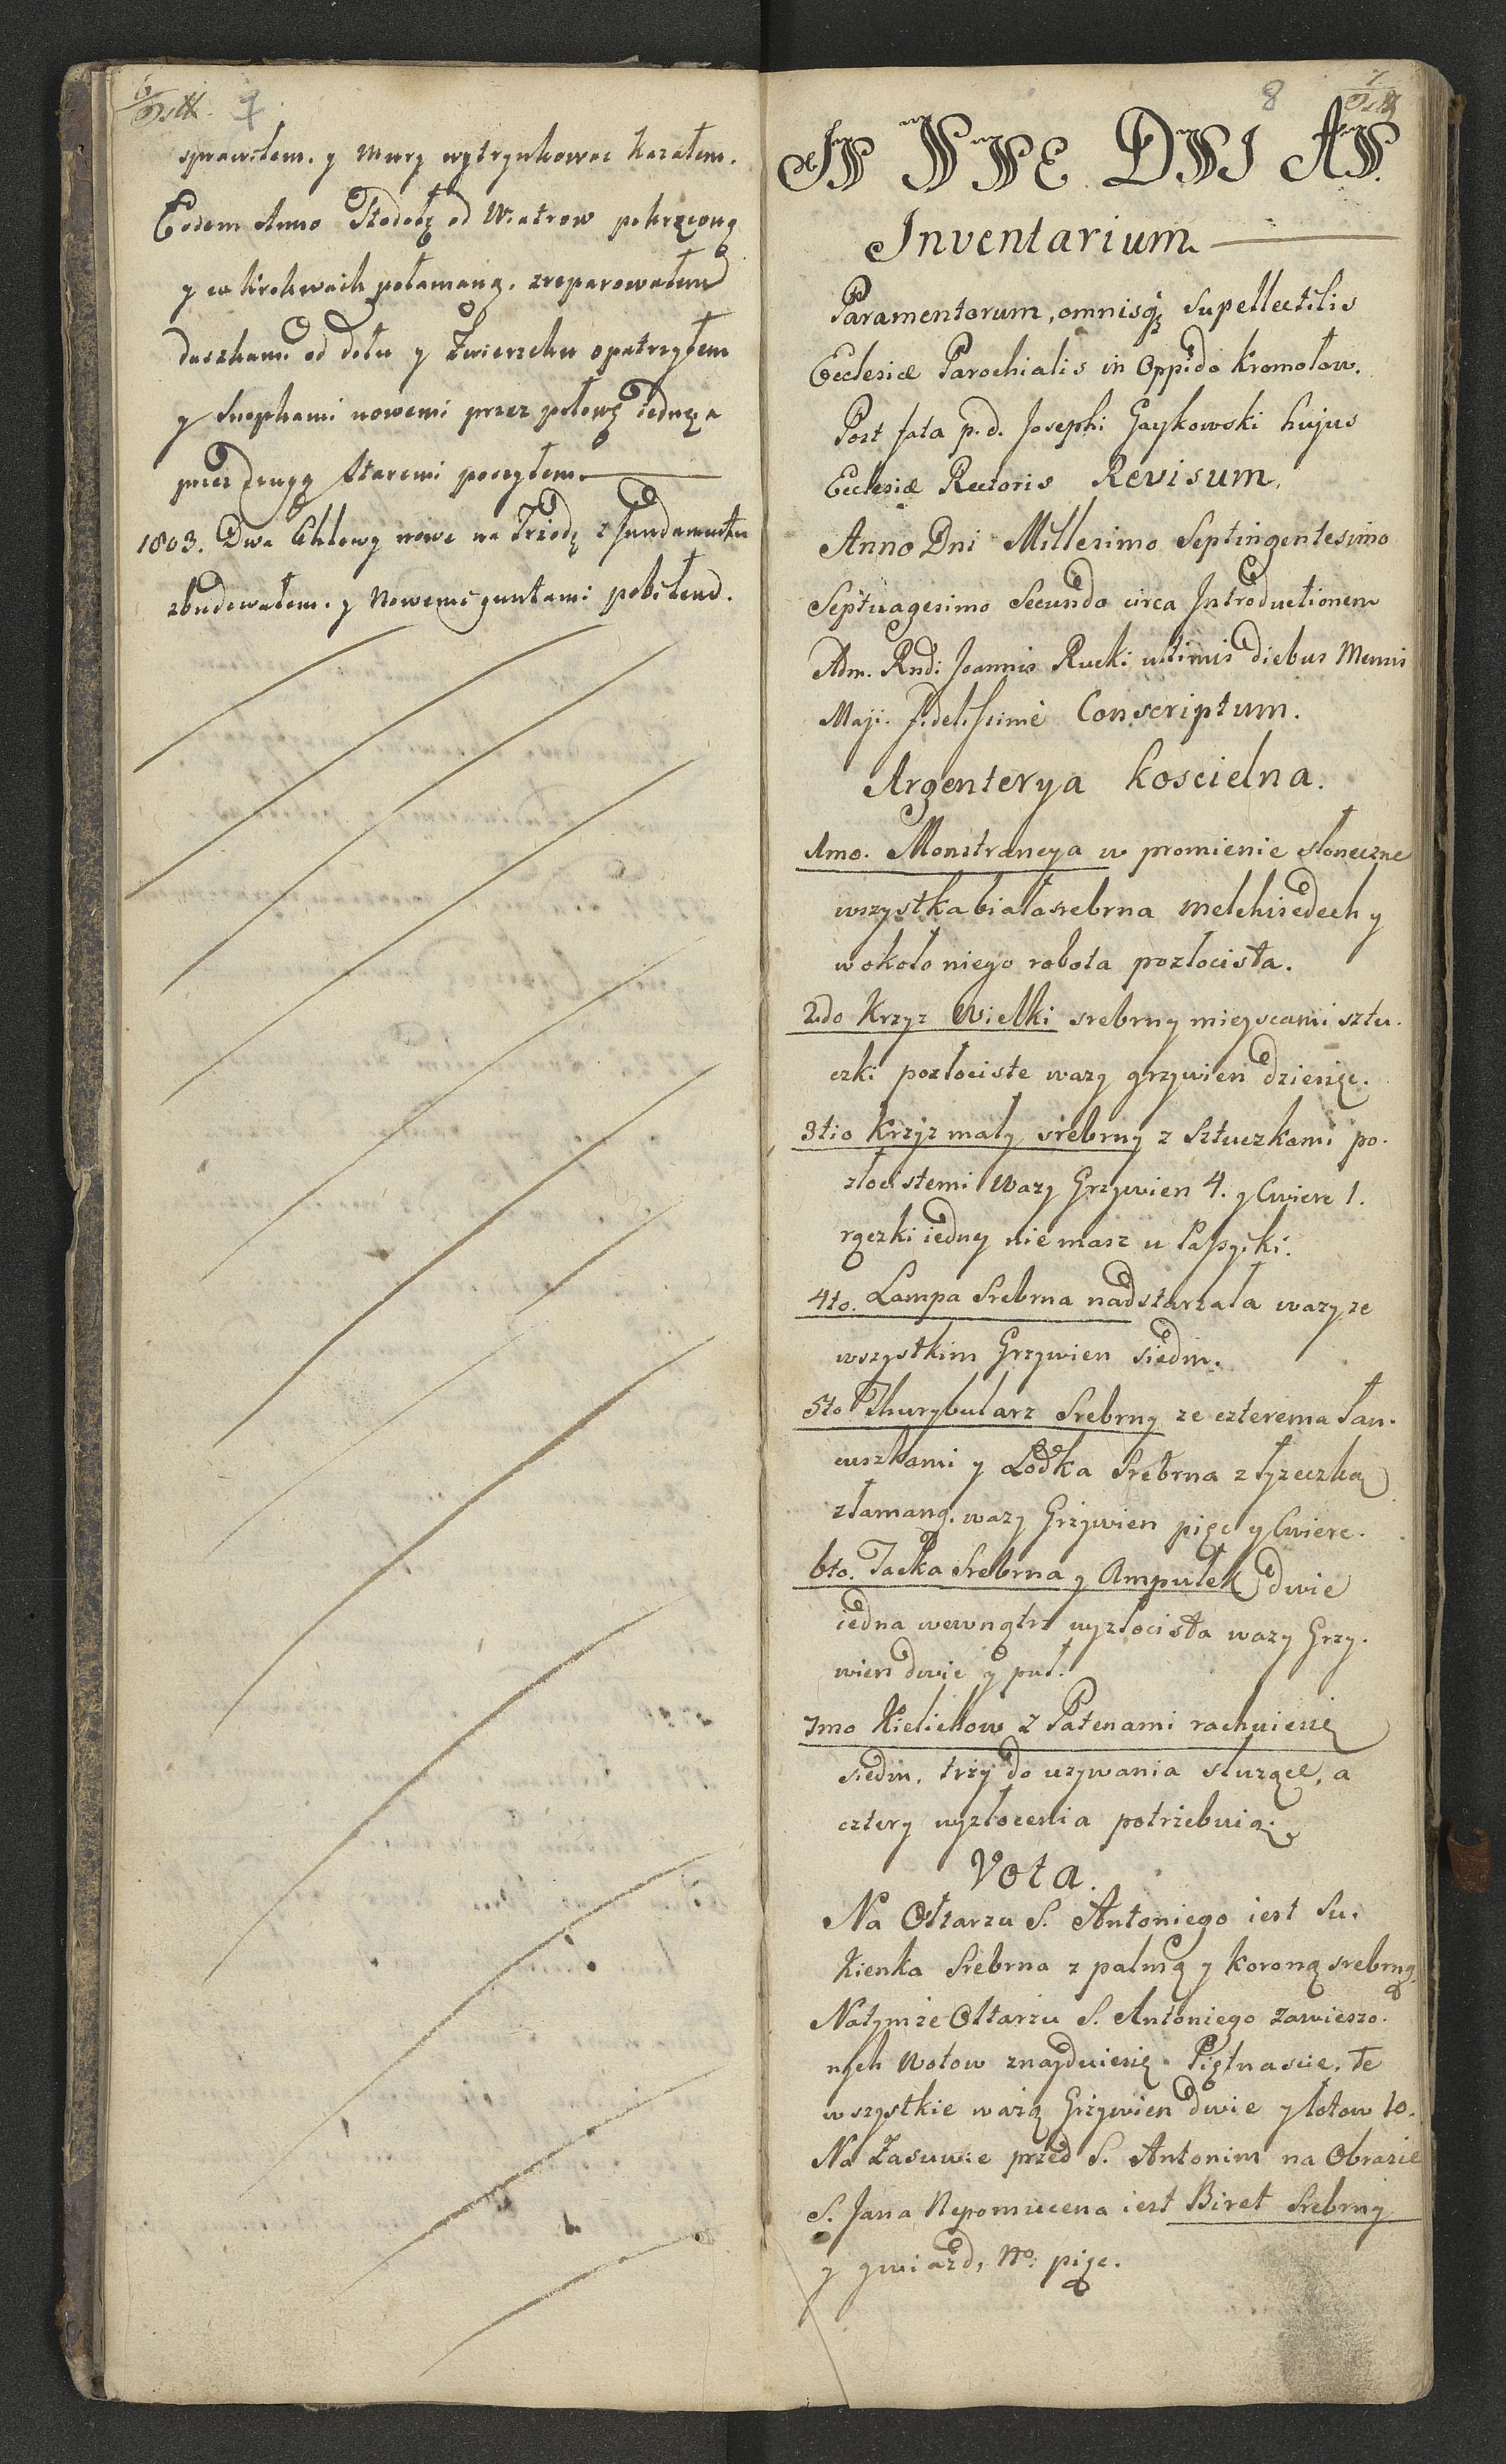 6
7
sprawiłem. y Mury wytrynkowac kazałem.
Eodem Anno Stodołę od Wiatrow pokrzcioną
y w krokwach połamaną. zreparowałem
daszkami od dołu y Zwierzchu opatrzyłem
y Snopkami nowemi przez połowę iednę a
przez drugą Staremi poszyłem.
1803. Dwa Chlewy nowe na Trzodę z fundamentu
zbudowałem. y Nowemi guntami pobiłem.
8
7
IN NNE DNI AN.
Inventarium
Paramentorum, omnisq; Supellectilis
Ecclesiæ Parochialis in Oppido Kromołow.
Post fata p. d. Josephi Gaykowski hujus
Ecclesiæ Rectoris Revisum,
Anno Dni Millesimo Septingentesimo
Septuagesimo Secundo circa Introductionem
Adm. Rndi Joannis Rucki ultimis diebus Mensis
Maji. fidelissime Conscriptum.
Argenterya Koscielna.
1mo. Monstrancya w promienie słoneczne
wszystka biała srebrna Melchisedech y
wokoło niego robota pozłocista.
2do Krzyz Wielki srebrny mieyscami sztu.
czki pozłociste wazy grzywien dziesięc.
3tio Krzyz mały srebrny z Sztuczkami po.
złocistemi Wazy Grzywien 4. y Cwierc 1.
rączki iedney niemasz u Passyiki.
4to. Lampa Srebrna nadstarzała wazy ze
wszystkim Grzywien siedm.
5to Thurybularz Srebrny ze czterema łan.
cuszkami y Łodka Srebrna z łyzeczką
złamaną. wazy Grzywien pięc y Cwierc.
6to. Tacka Srebrna y Ampułek dwie
iedna wewnątrz wyzłocista wazy Grzy.
wien dwie y puł.
7mo Kielichow z Patenami rachuiesię
siedm. trzy do uzywania słuzące, a
cztery wyzłocenia potrzebuią.
Vota.
Na Ołtarzu S. Antoniego iest Su.
kienka Srebrna z palmą y koroną srebrną.
Natymze Ołtarzu S. Antoniego zawieszo.
nych Wotow znayduiesię Piętnascie. Te
wszystkie wazą Grzywien dwie y łotow 10.
Na Zasuwie przed S. Antonim na Obrazie
S. Jana Nepomucena iest Biret Srebrny
y gwiazd, No: pięc.